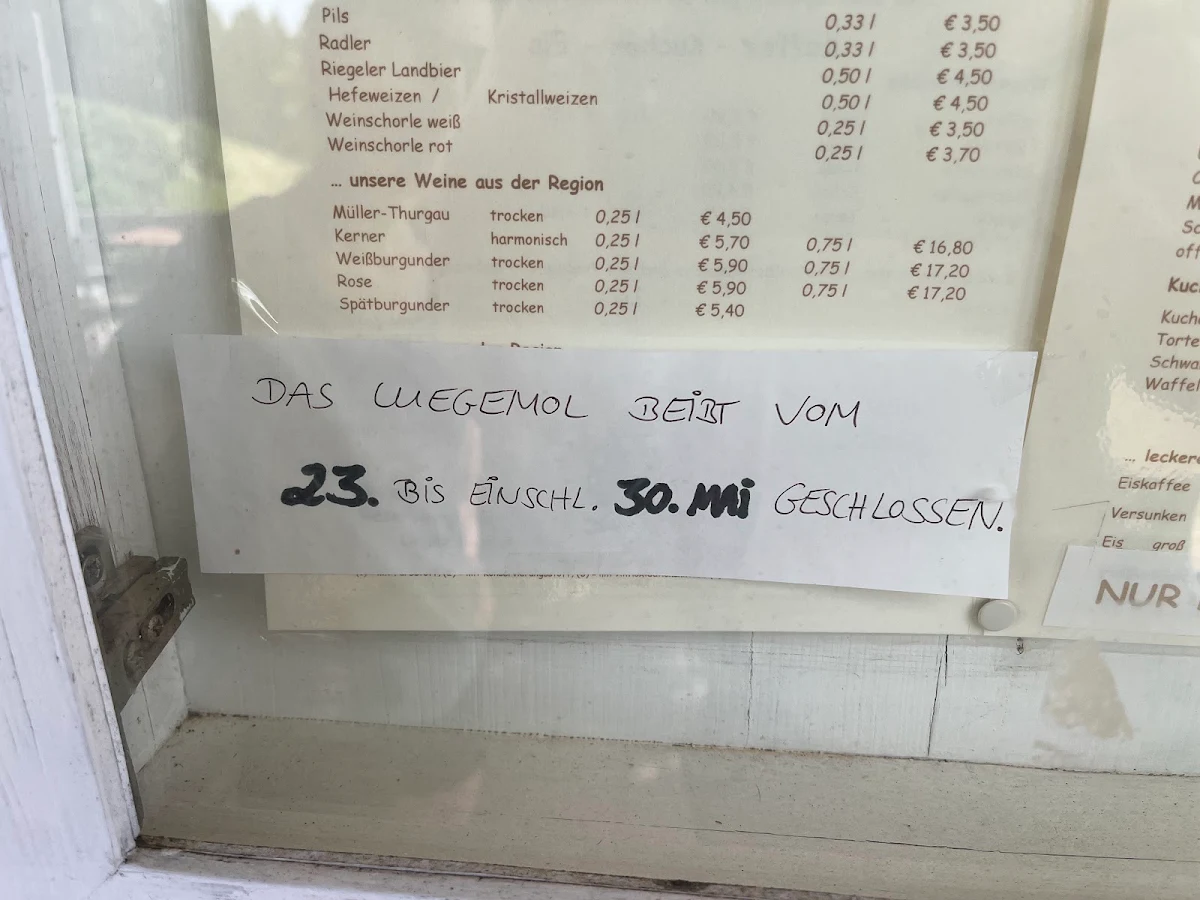 Pils 0,33 l € 3,50
Radler 0,33 l € 3,50
Riegeler Landbier 0,50 l € 4,50
Hefeweizen / Kristallweizen 0,50 l € 4,50
Weinschorle weiß 0,25 l € 3,50
Weinschorle rot 0,25 l € 3,70
... unsere Weine aus der Region
Müller-Thurgau trocken 0,25 l € 4,50
Kerner harmonisch 0,25 l € 5,70 0,75 l € 16,80
Weißburgunder trocken 0,25 l € 5,90 0,75 l € 17,20
Rose trocken 0,25 l € 5,90 0,75 l € 17,20
Spätburgunder trocken 0,25 l € 5,40
DAS WEGEMOL BEIBT VOM
23. BIS EINSCHL. 30. MAI GESCHLOSSEN.
... lecker
Eiskaffee
Versunken
Eis groß
NUR